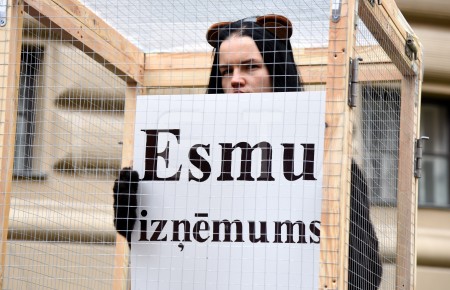 Esmu
izņēmums